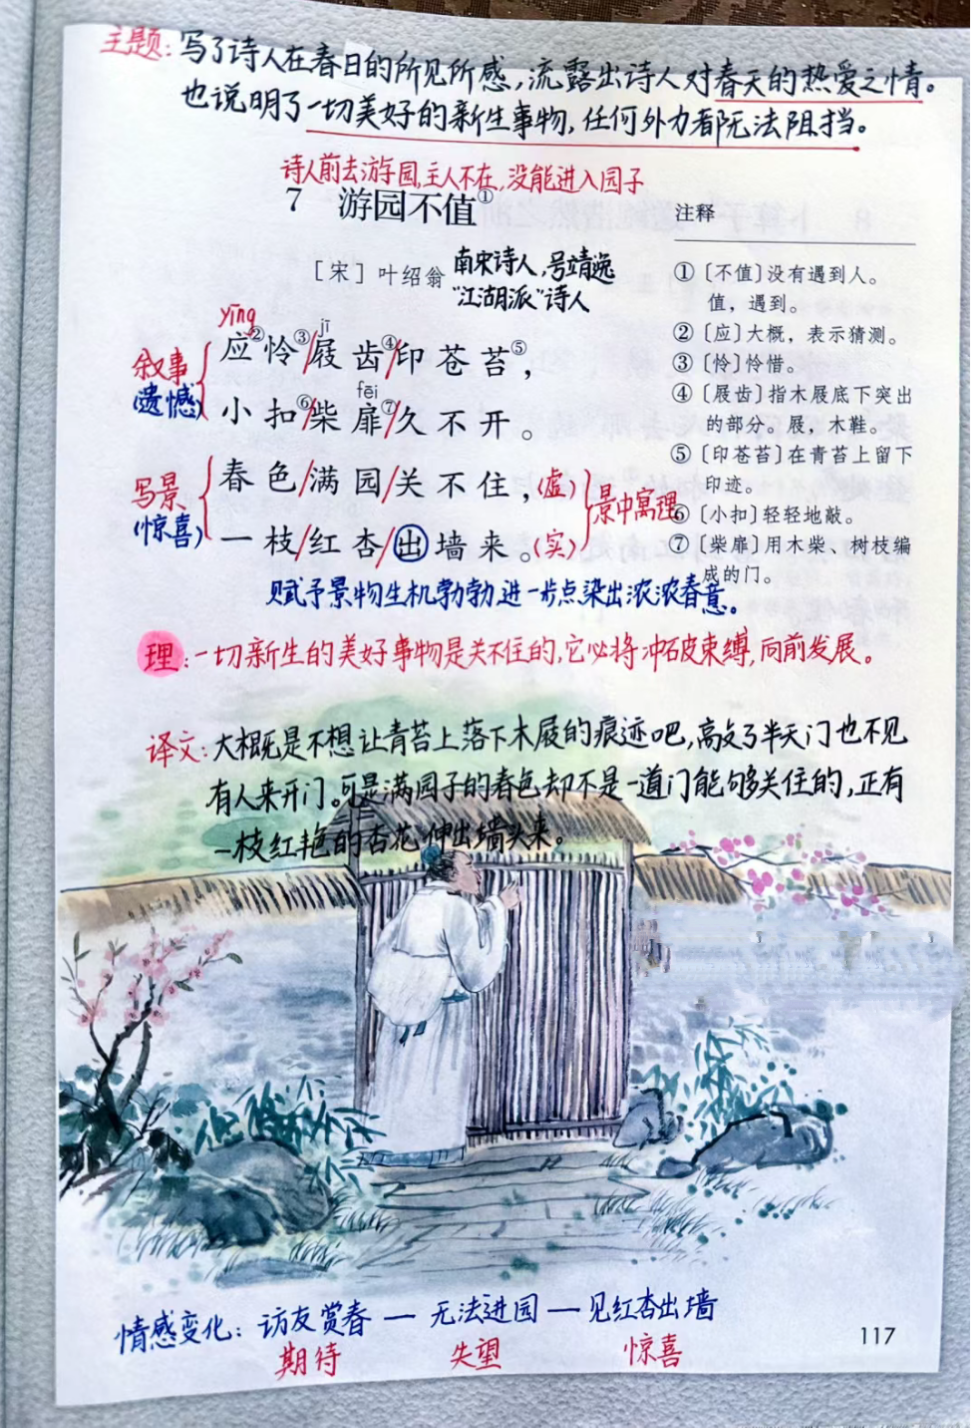 主题：写了诗人在春日的所见所感，流露出诗人对春天的热爱之情。
也说明了一切美好的新生事物，任何外力都无法阻挡。
诗人前去游园，主人不在，没能进入园子
7 游园不值①
［宋］叶绍翁 南宋诗人，号靖逸
“江湖派”诗人
yīng jī
叙事 应②怜③/屐齿④/印苍苔⑤，
(遗憾)
fēi
小扣⑥/柴扉⑦/久不开。
写景 春色/满园/关不住，(虚)
(惊喜) 一枝/红杏/出墙来。(实)
景中寓理
赋予景物生机勃勃，进一步点染出浓浓春意。
注释
①〔不值〕没有遇到人。
值，遇到。
②〔应〕大概，表示猜测。
③〔怜〕怜惜。
④〔屐齿〕指木屐底下突出
的部分。屐，木鞋。
⑤〔印苍苔〕在青苔上留下
印迹。
⑥〔小扣〕轻轻地敲。
⑦〔柴扉〕用木柴、树枝编
成的门。
理：一切新生的美好事物是关不住的，它必将冲破束缚，向前发展。
译文：大概是不想让青苔上落下木屐的痕迹吧，高敲了半天门也不见
有人来开门。可是满园子的春色却不是一道门能够关住的，正有
一枝红艳的杏花伸出墙头来。
情感变化：访友赏春 — 无法进园 — 见红杏出墙
期待 失望 惊喜
117